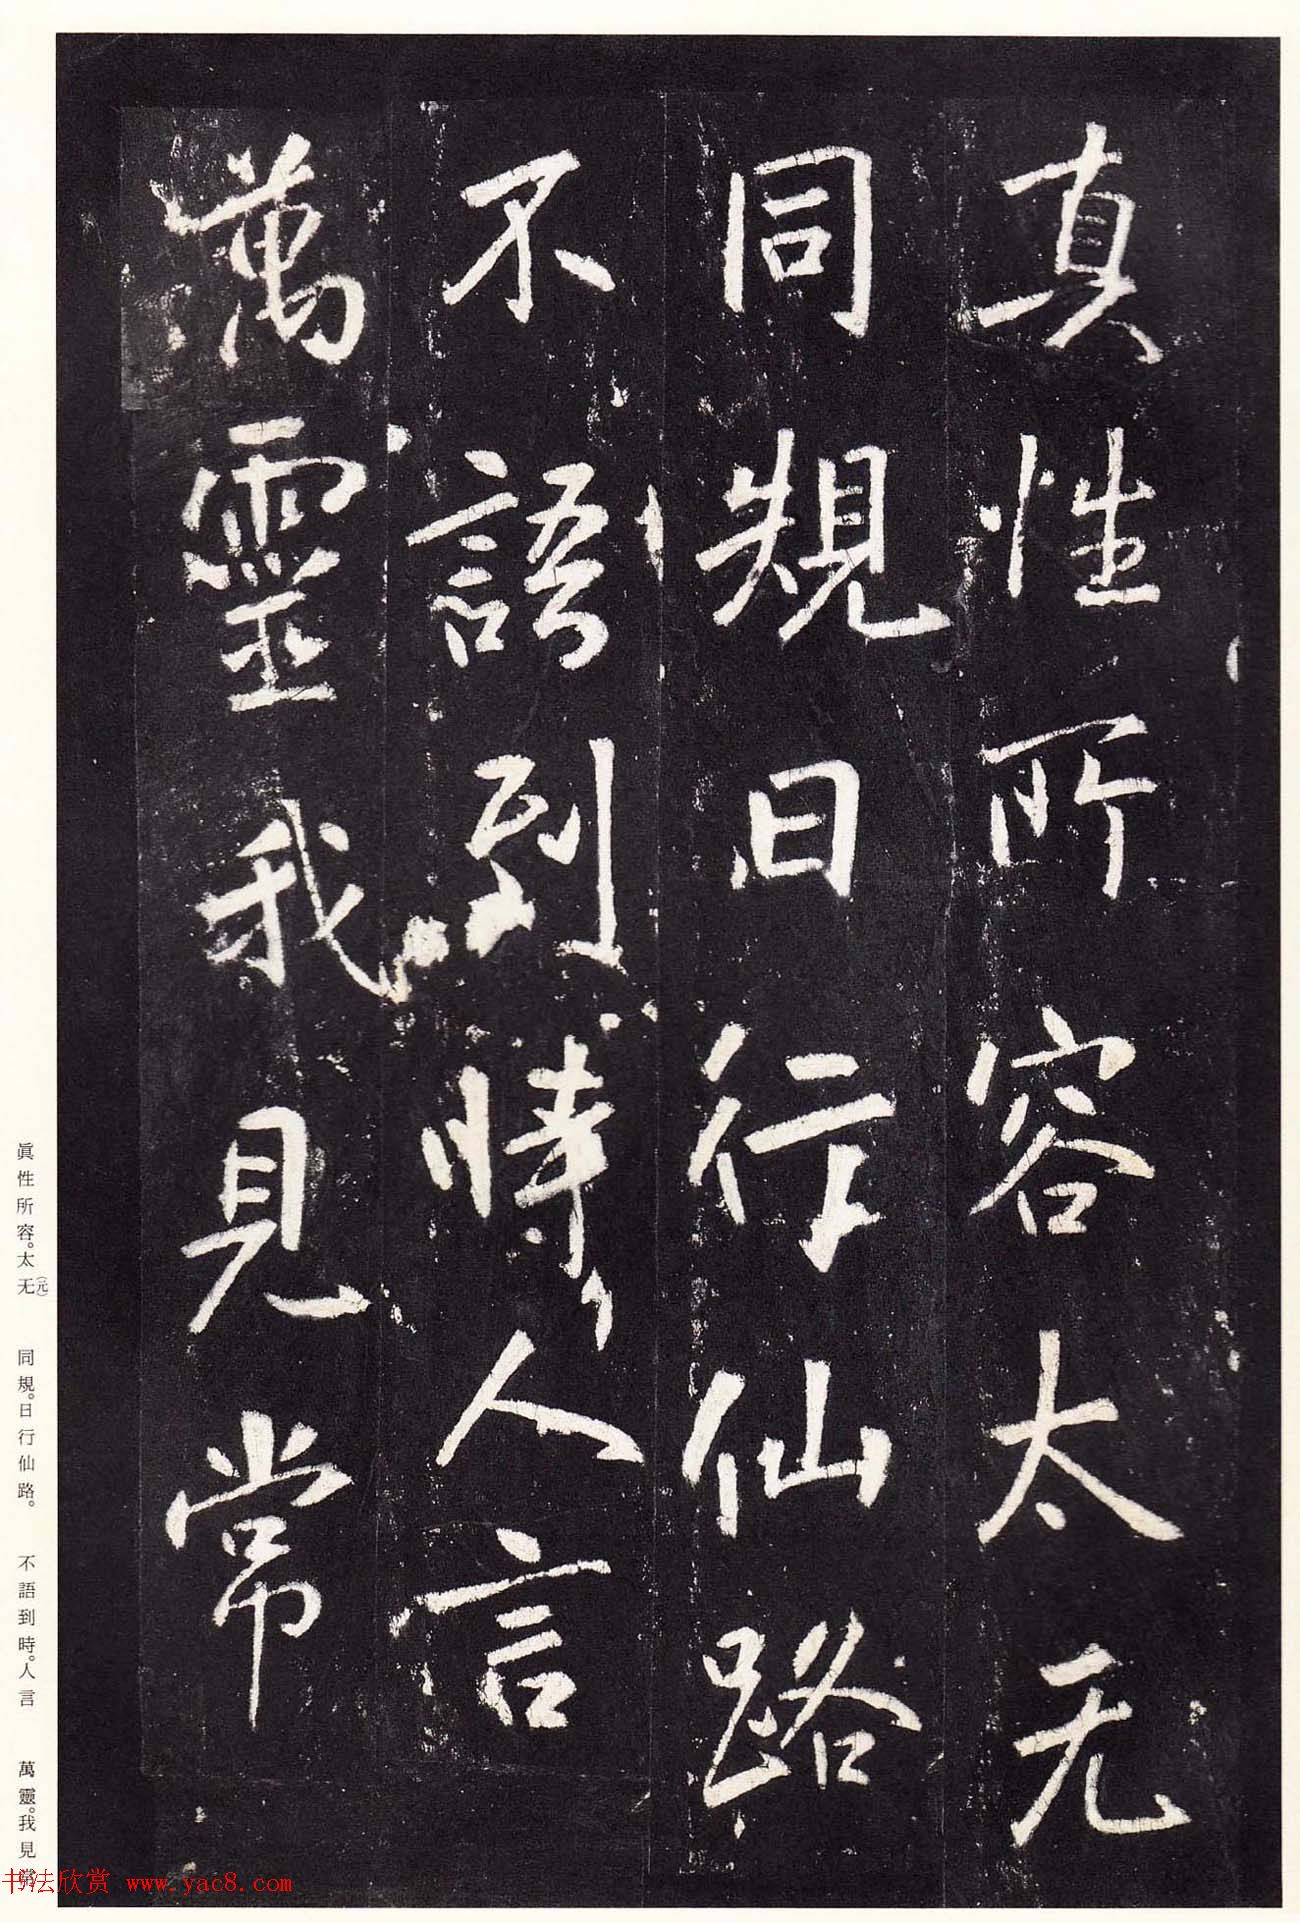 真性所容太无
同規日行仙路
不語到時人言
萬靈我見常
眞性所容。太无(元) 同規。日行仙路。 不語到時。人言 萬靈。我見常
书法欣赏 www.yac8.com